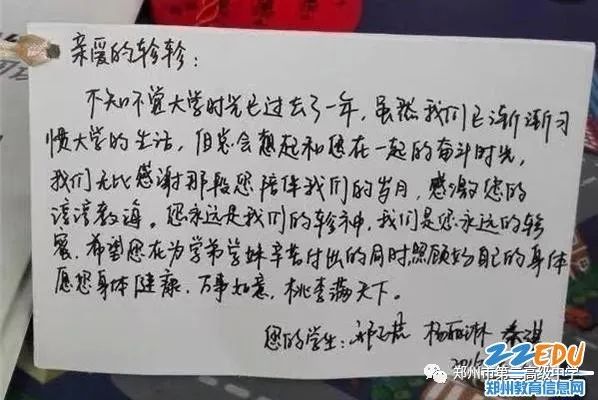 亲爱的轸轸:
不知不觉大学时光已过去了一年,虽然我们已渐渐习
惯大学的生活,但总会想起和您在一起的奋斗时光,
我们无比感谢那段您陪伴我们的岁月,感激您的
谆谆教诲。您永远是我们的轸神,我们是您永远的轸
蜜,希望您在为学弟学妹辛苦付出的同时,照顾好自己的身体
愿您身体健康,万事如意,桃李满天下。
您的学生:
22EDU
郑州市第二高级中学
郑州教育信息网